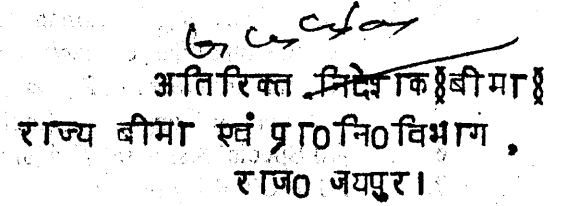 अतिरिक्त निदेशक॥बीमा॥
राज्य बीमा एवं प्रा0नि0विभाग,
राज0 जयपुर।